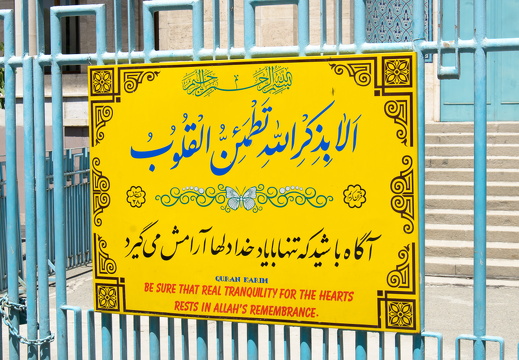 بسم الله الرحمن الرحیم
اَلٰا بِذِکْرِ اللهِ تَطْمَئِنُّ الْقُلُوبُ
آگاه باشید که تنها با یاد خدا دلها آرامش می گیرد
QURAN KARIM
BE SURE THAT REAL TRANQUILITY FOR THE HEARTS
RESTS IN ALLAH'S REMEMBRANCE.